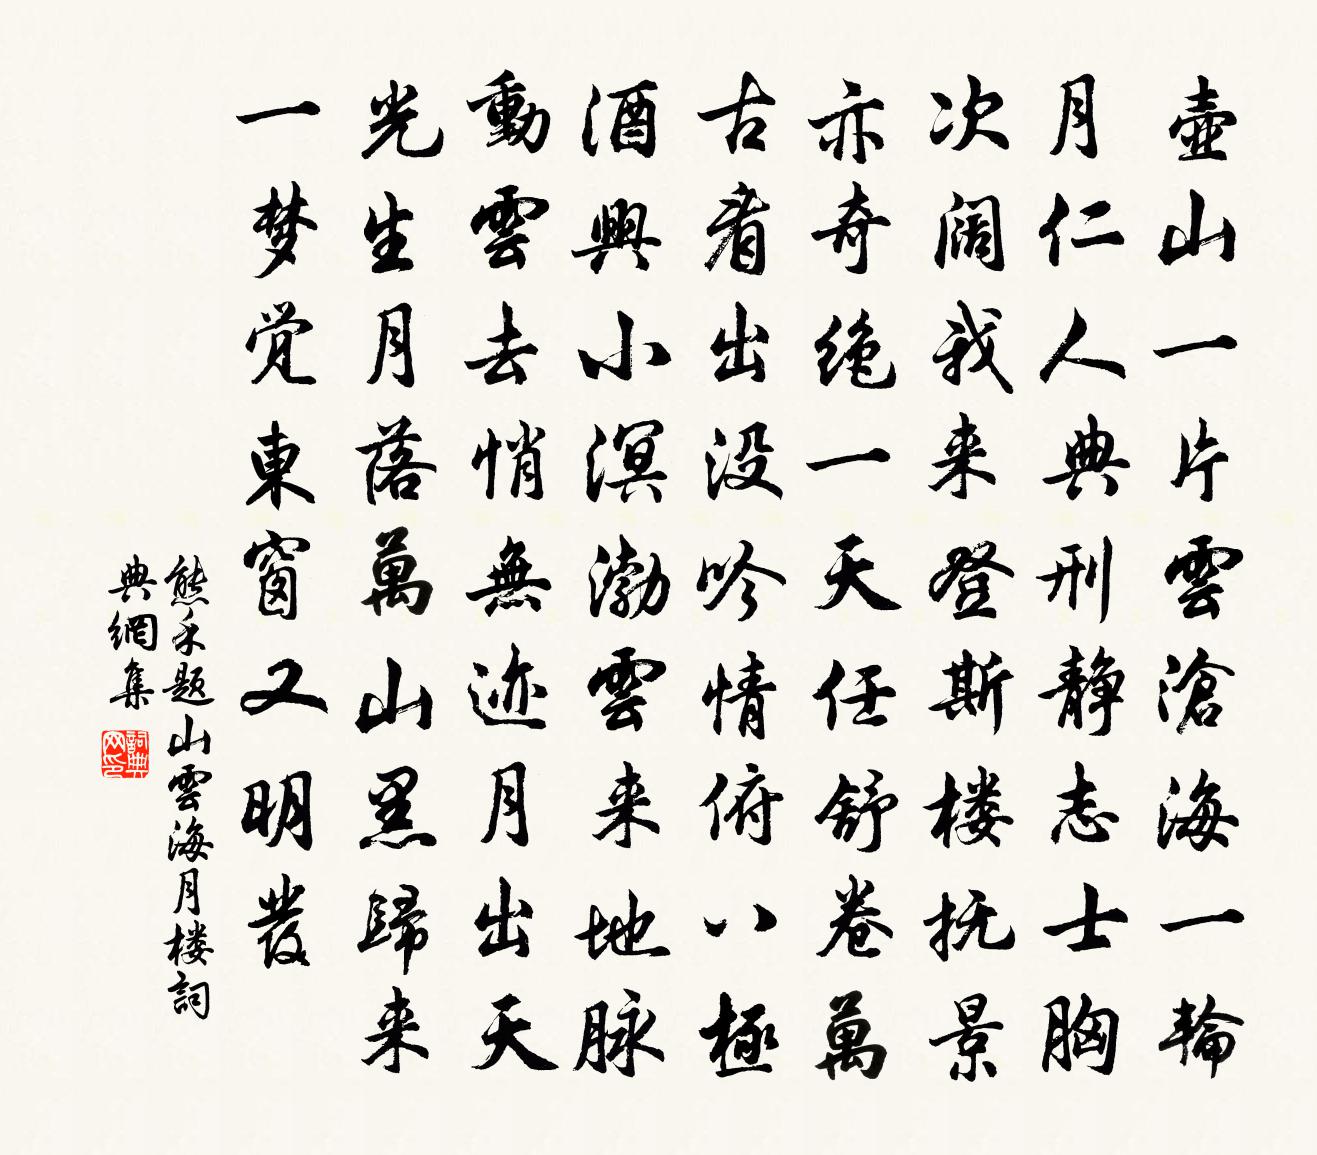 壺山一片雲滄海一輪
月仁人典刑静志士胸
次阔我来登斯楼抚景
亦奇绝一天任舒卷萬
古看出没吟情俯八極
酒興小溟渤雲来地脉
動雲去悄無迹月出天
光生月落萬山黑歸来
一梦觉東窗又明發
熊禾题山雲海月楼詞
典網集
詞典网印